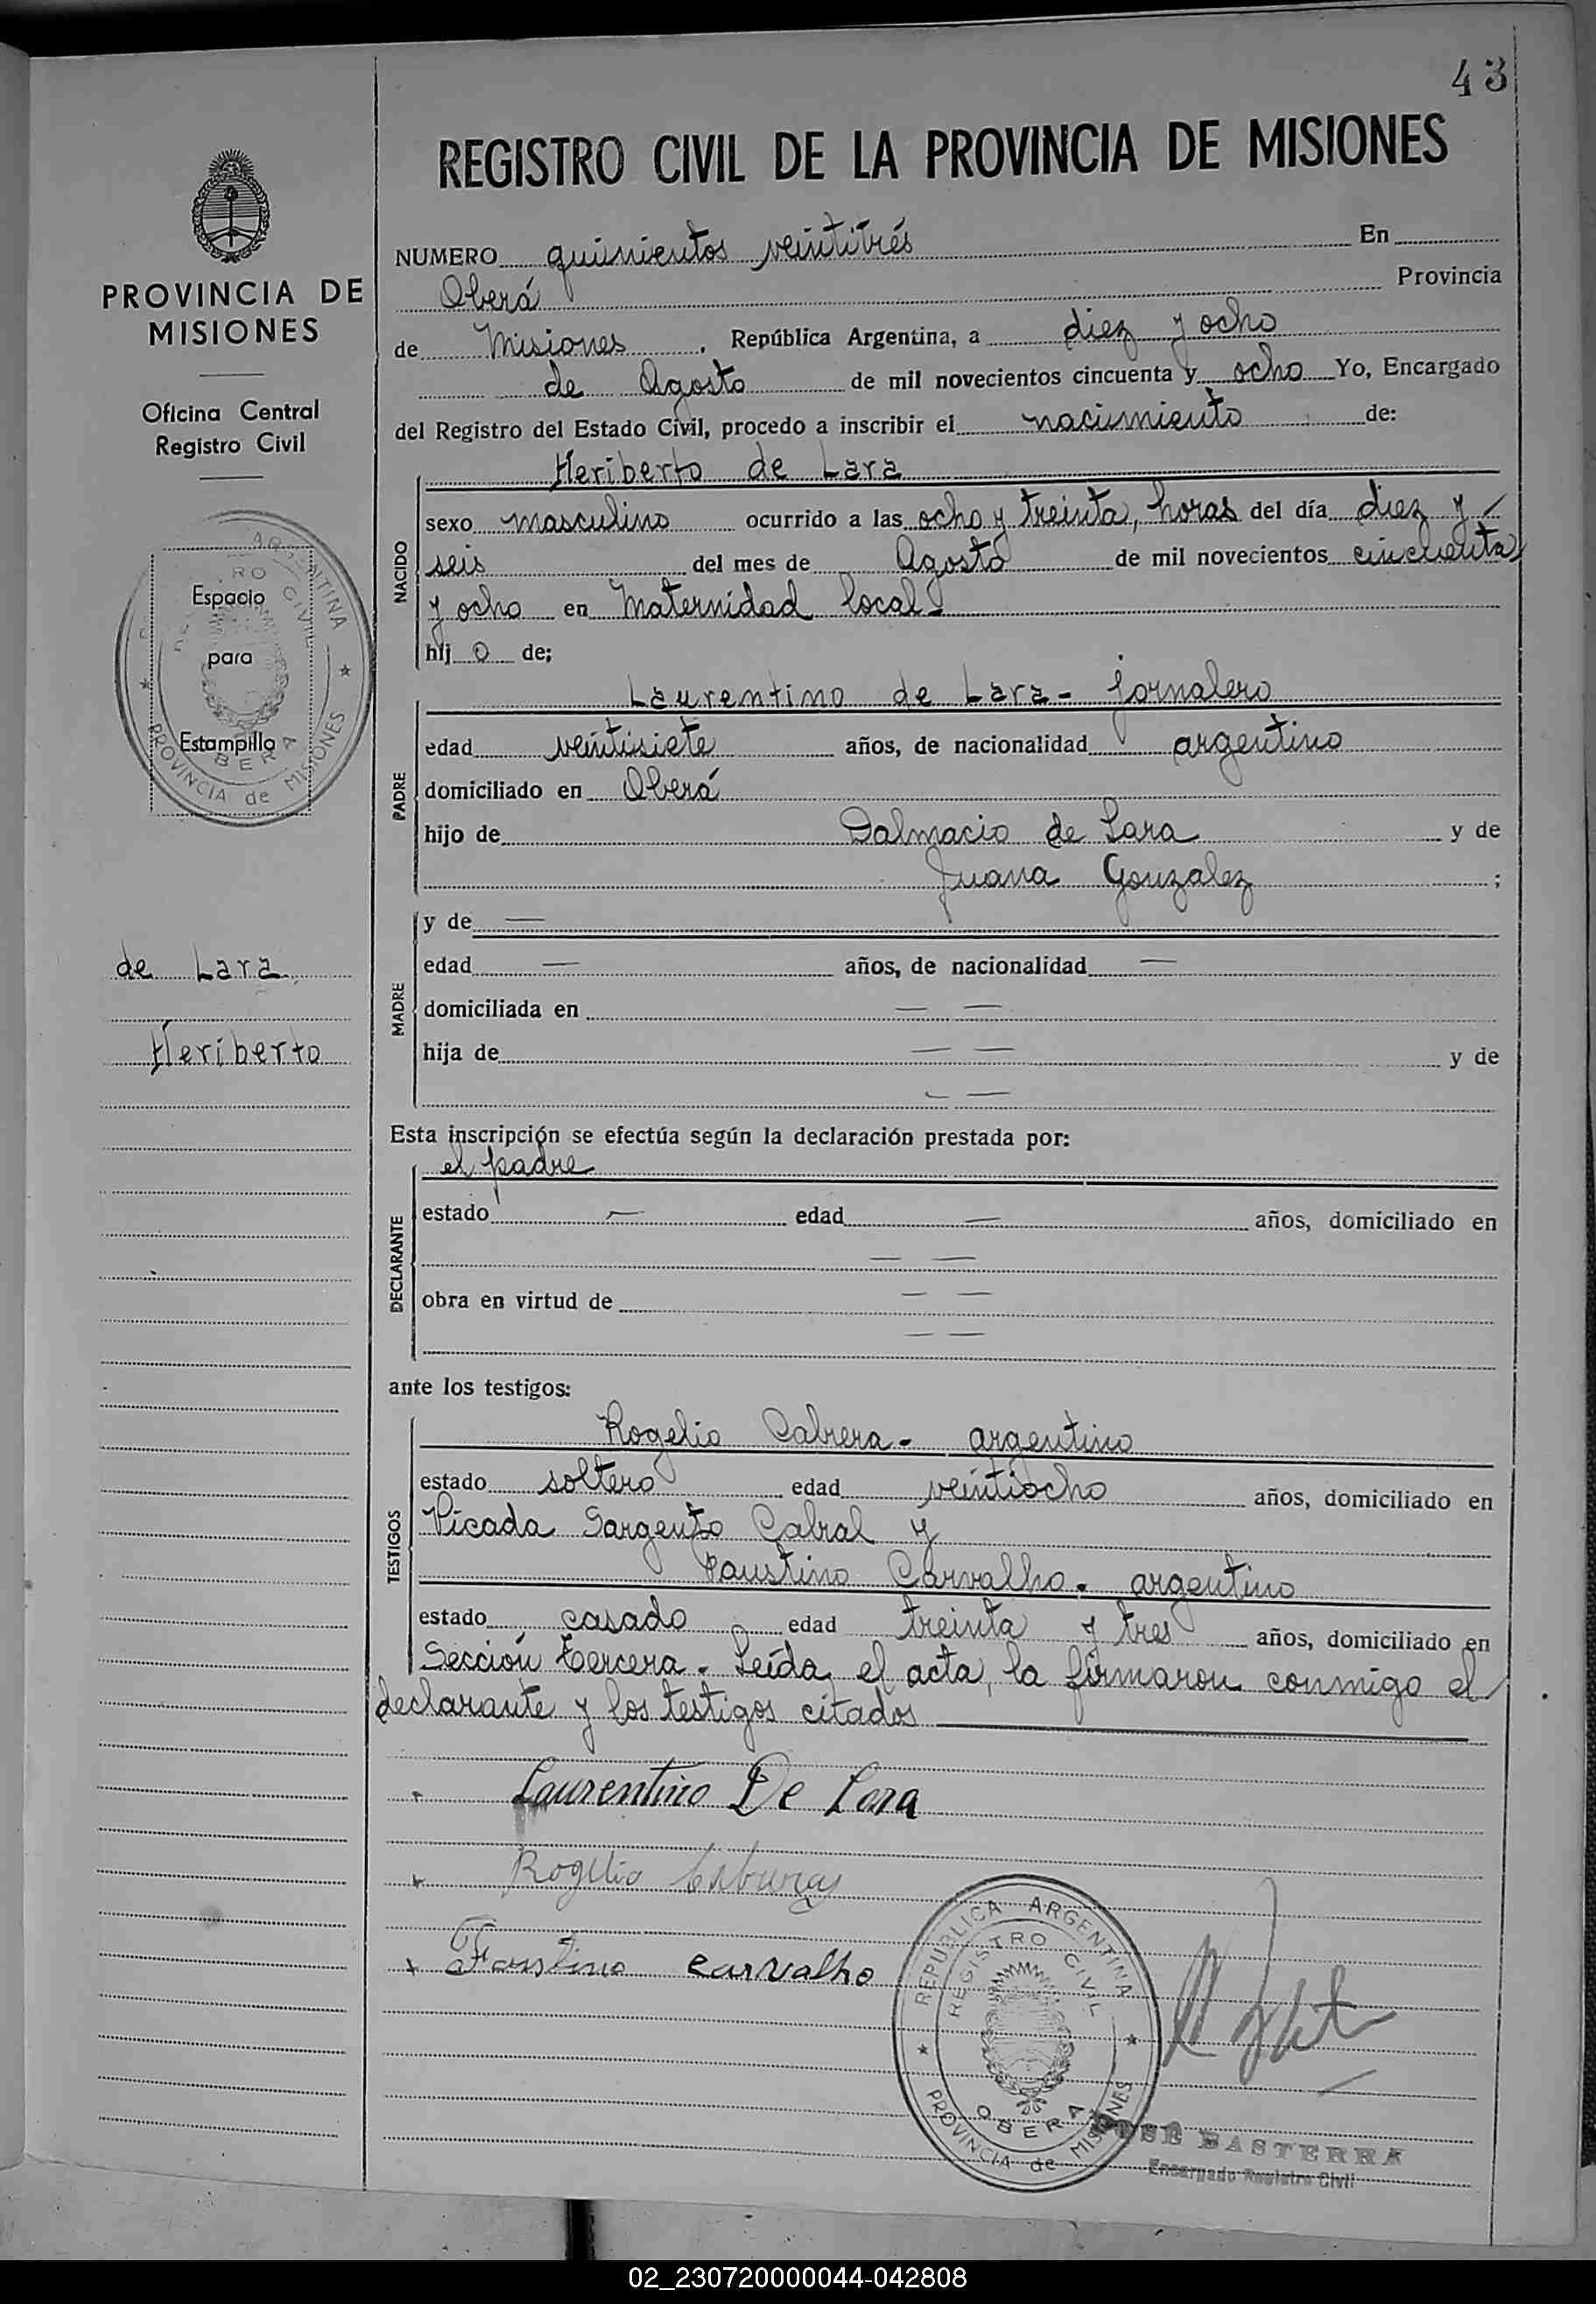 43
REGISTRO CIVIL DE LA PROVINCIA DE MISIONES
PROVINCIA DE
MISIONES
Oficina Central
Registro Civil
Espacio
para
Estampilla
ARGENTINA
RO CIVIL
OBERA
PROVINCIA de MISIONES
de Lara
Heriberto
NUMERO quinientos veintitrés En
Oberá Provincia
de Misiones, República Argentina, a diez y ocho
de Agosto de mil novecientos cincuenta y ocho Yo, Encargado
del Registro del Estado Civil, procedo a inscribir el nacimiento de:
Heriberto de Lara
NACIDO
sexo masculino ocurrido a las ocho y treinta, horas del día diez y
seis del mes de Agosto de mil novecientos cincuenta
y ocho en Maternidad local-
hij o de;
Laurentino de Lara - jornalero
PADRE
edad veintisiete años, de nacionalidad argentino
domiciliado en Oberá
hijo de Dalmacio de Lara y de
Juana Gonzalez ;
MADRE
y de —
edad — años, de nacionalidad —
domiciliada en — —
hija de — — y de
— —
Esta inscripción se efectúa según la declaración prestada por:
el padre
DECLARANTE
estado — edad — años, domiciliado en
— —
obra en virtud de — —
— —
ante los testigos:
Rogelio Cabrera - argentino
TESTIGOS
estado soltero edad veintiocho años, domiciliado en
Picada Sargento Cabral y
Faustino Carvalho - argentino
estado casado edad treinta y tres años, domiciliado en
Sección tercera. Leída el acta, la firmaron conmigo el
declarante y los testigos citados
Laurentino De Lara
Rogelio
Faustino Carvalho
REPUBLICA ARGENTINA
REGISTRO CIVIL
OBERA
PROVINCIA de MISIONES
JOSE BASTERRA
Encargado Registro Civil
02_230720000044-042808